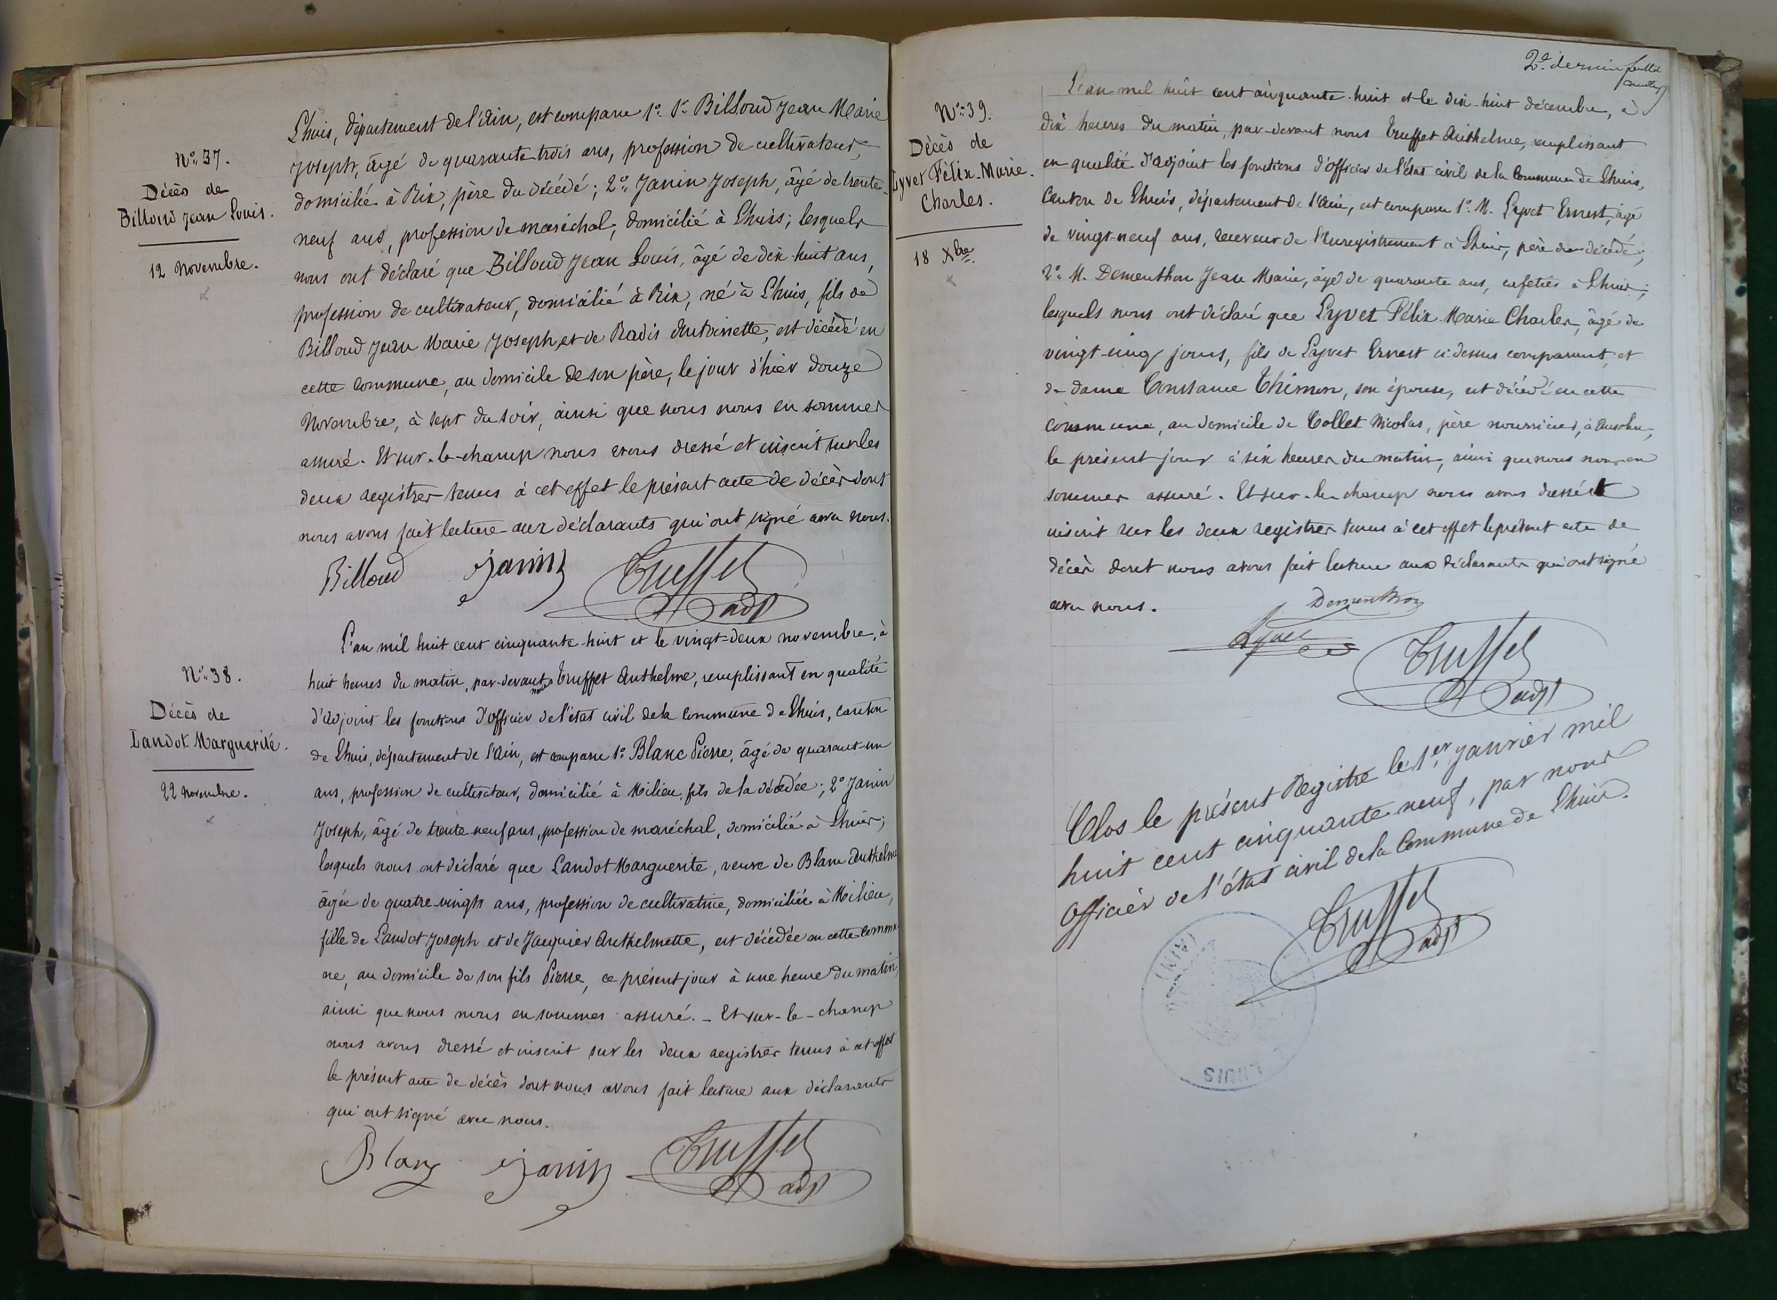 N° 37.
Décès de
Billoud Jean Louis.
12 Novembre.
Lhuis, département de l'Ain, est comparu 1° Sr Billoud Jean Marie
Joseph, âgé de quarante trois ans, profession de cultivateur,
domicilié à Rix, père du décédé; 2° Janin Joseph, âgé de trente-
neuf ans, profession de maréchal, domicilié à Lhuis; lesquels
nous ont déclaré que Billoud Jean Louis, âgé de dix huit ans,
profession de cultivateur, domicilié à Rix, né à Lhuis, fils de
Billoud Jean Marie Joseph, et de Radis Antoinette, est décédé en
cette commune, au domicile de son père, le jour d'hier douze
Novembre, à sept du soir, ainsi que nous nous en sommes
assuré. Et sur-le-champ nous avons dressé et inscrit sur les
deux registres tenus à cet effet le présent acte de décès dont
nous avons fait lecture aux déclarants qui ont signé avec nous.
Billoud Janin Truffet
adjt
N° 38.
Décès de
Landot Marguerite.
22 novembre.
L'an mil huit cent cinquante huit et le vingt-deux novembre, à
huit heures du matin, par-devant nous Truffet Anthelme, remplissant en qualité
d'adjoint les fonctions d'officier de l'état civil de la Commune de Lhuis, canton
de Lhuis, département de l'Ain, est comparu 1° Blanc Pierre, âgé de quarante-un
ans, profession de cultivateur, domicilié à Milieu, fils de la décédée; 2° Janin
Joseph, âgé de trente neuf ans, profession de maréchal, domicilié à Lhuis;
lesquels nous ont déclaré que Landot Marguerite, veuve de Blanc Anthelme
âgée de quatre-vingts ans, profession de cultivatrice, domiciliée à Milieu,
fille de Landot Joseph et de Jacquier Anthelmette, est décédée en cette commu
ne, au domicile de son fils Pierre, ce présent jour à une heure du matin
ainsi que nous nous en sommes assuré. - Et sur-le-champ
nous avons dressé et inscrit sur les deux registres tenus à cet effet
le présent acte de décès dont nous avons fait lecture aux déclarants
qui ont signé avec nous.
Blanc Janin Truffet
adjt
2e dernier feuillet
N° 39.
Décès de
Lyvet Félix Marie
Charles.
18 Xbre.
L'an mil huit cent cinquante-huit et le dix-huit décembre, à
dix heures du matin, par-devant nous Truffet Anthelme, remplissant
en qualité d'adjoint les fonctions d'officier de l'état civil de la Commune de Lhuis,
Canton de Lhuis, département de l'Ain, est comparu 1° M. Lyvet Ernest, âgé
de vingt-neuf ans, receveur de l'enregistrement à Lhuis, père du décédé;
2° M. Dementhon Jean Marie, âgé de quarante ans, cafetier à Lhuis;
lesquels nous ont déclaré que Lyvet Félix Marie Charles, âgé de
vingt-cinq jours, fils de Lyvet Ernest ci-dessus comparant, et
de dame Constance Thimon, son épouse, est décédé en cette
commune, au domicile de Collet Nicolas, père nourricier, à
le présent jour à six heures du matin, ainsi que nous nous en
sommes assuré. Et sur-le-champ nous avons dressé et
inscrit sur les deux registres tenus à cet effet le présent acte de
décès dont nous avons fait lecture aux déclarants qui ont signé
avec nous.
Dementhon
Lyvet
Truffet
adjt
Clos le présent Registre le 1er Janvier mil
huit cent cinquante neuf, par nous
Officier de l'état civil de la Commune de Lhuis.
Truffet
adjt
(AIN)
LHUIS